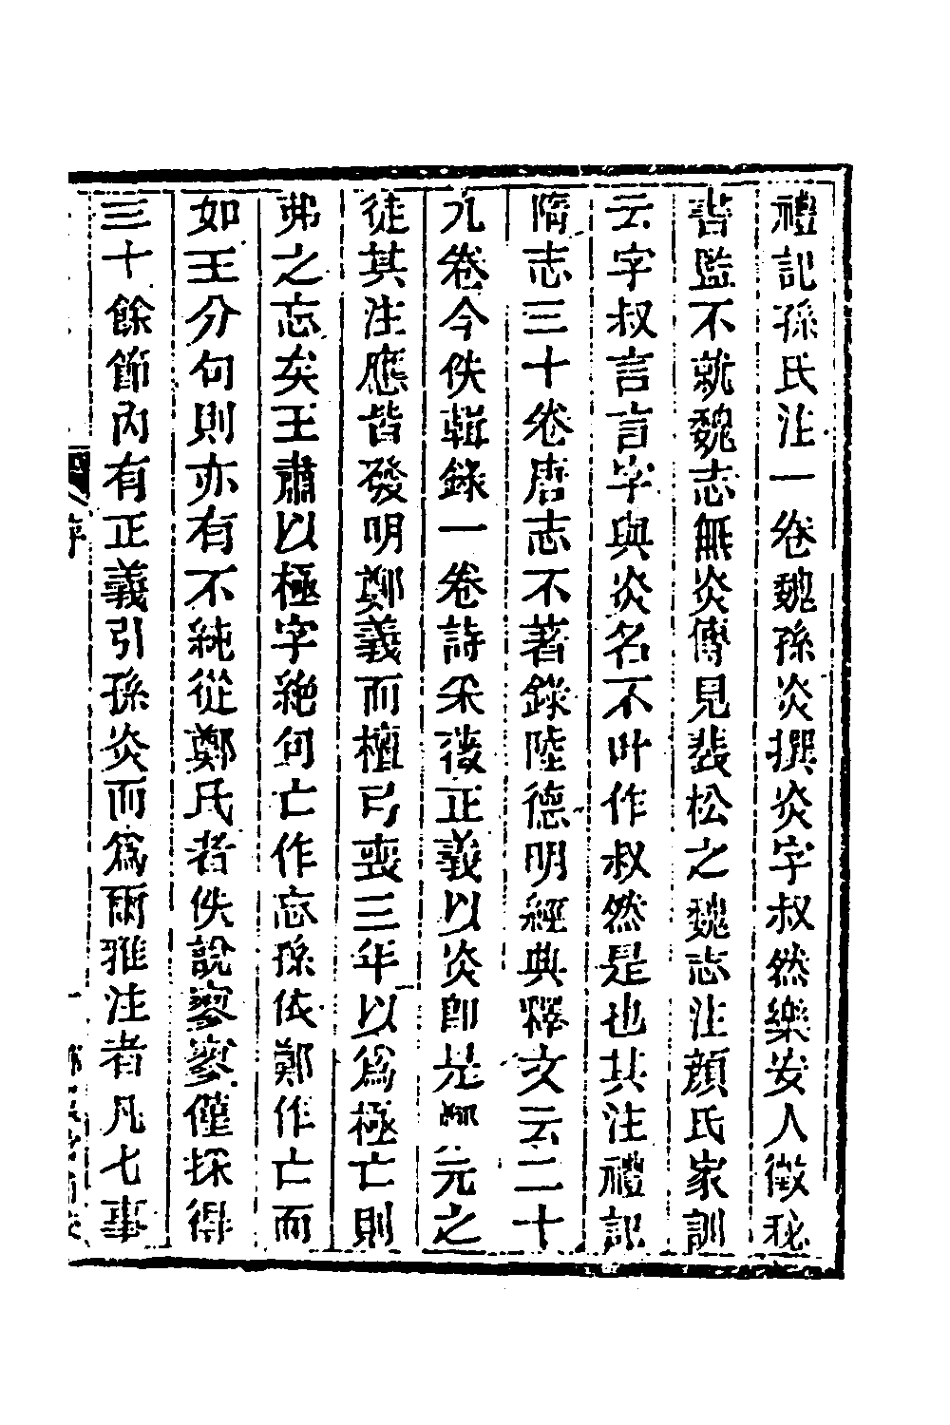 禮記孫氏注一卷魏孫炎撰炎字叔然樂安人徵秘
書監不就魏志無炎傳見裴松之魏志注顏氏家訓
云字叔言言字與炎名不叶作叔然是也其注禮記
隋志三十卷唐志不著錄陸德明經典釋文云二十
九卷今佚輯錄一卷詩采後正義以炎卽是鄭元之
徒其注應皆發明鄭義而檀弓喪三年以爲極亡則
弗之忘矣王肅以極字絕句亡作忘孫依鄭作亡而
如王分句則亦有不純從鄭氏者佚說寥寥僅採得
三十餘節內有正義引孫炎而爲爾雅注者凡七事
序